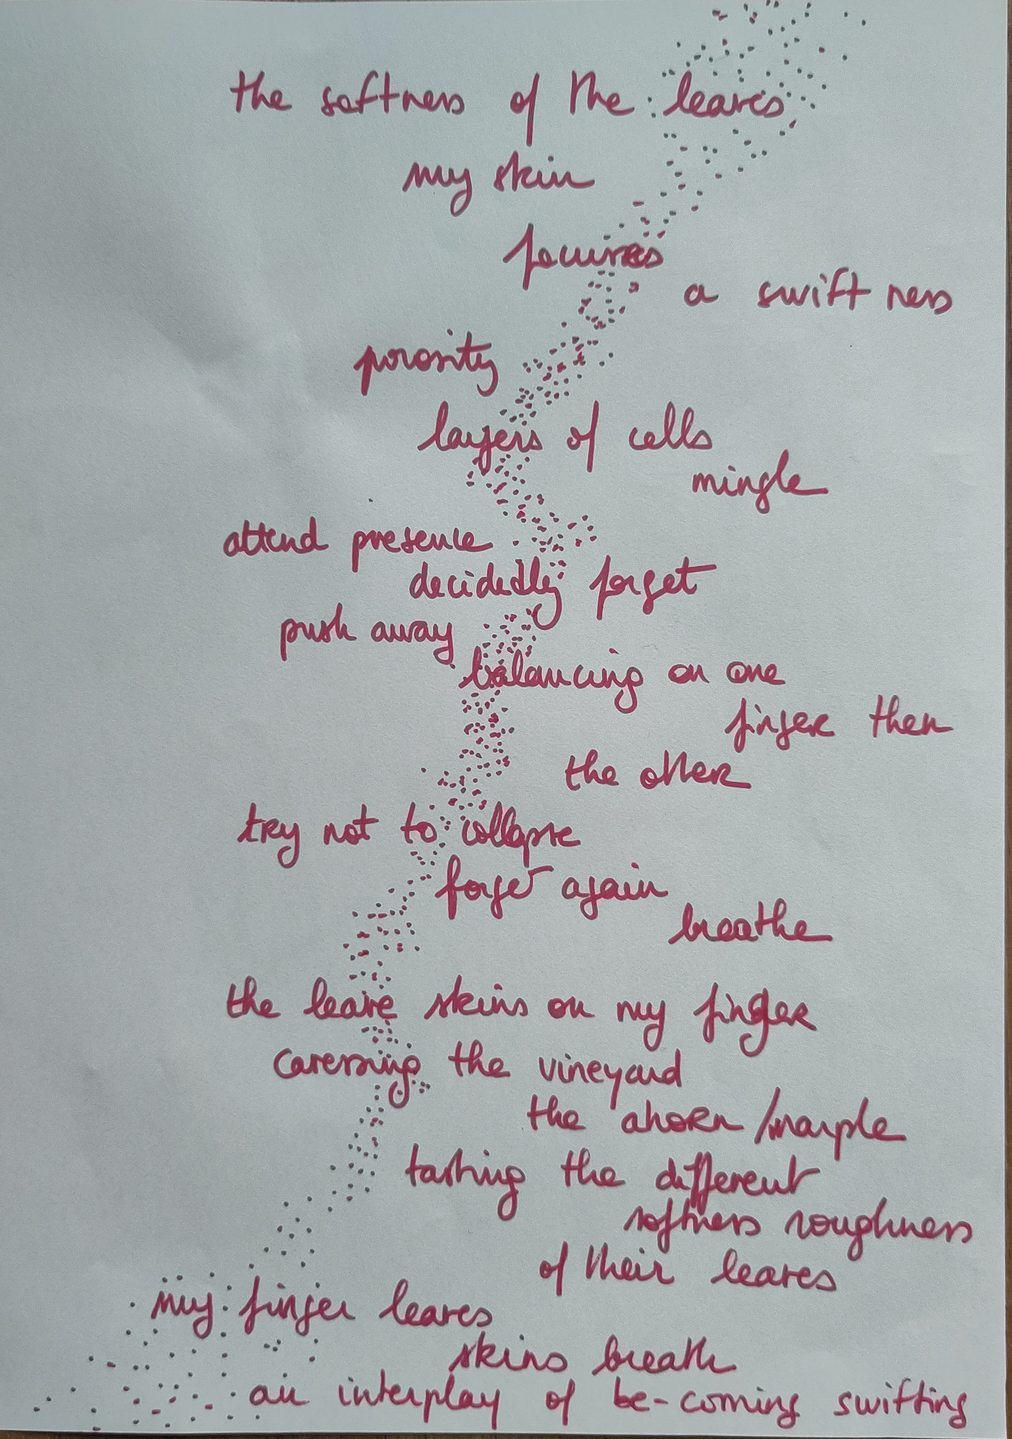 the softness of the leaves
my skin
focuses
a swiftness
porosity
layers of cells
mingle
attend presence
decidedly forget
push away
balancing on one
finger then
the other
try not to collapse
forget again
breathe
the leave skins on my finger
caressing the vineyard
the ahorn/marple
tasting the different
softness roughness
of their leaves
my finger leaves
skins breath
an interplay of be-coming swifting